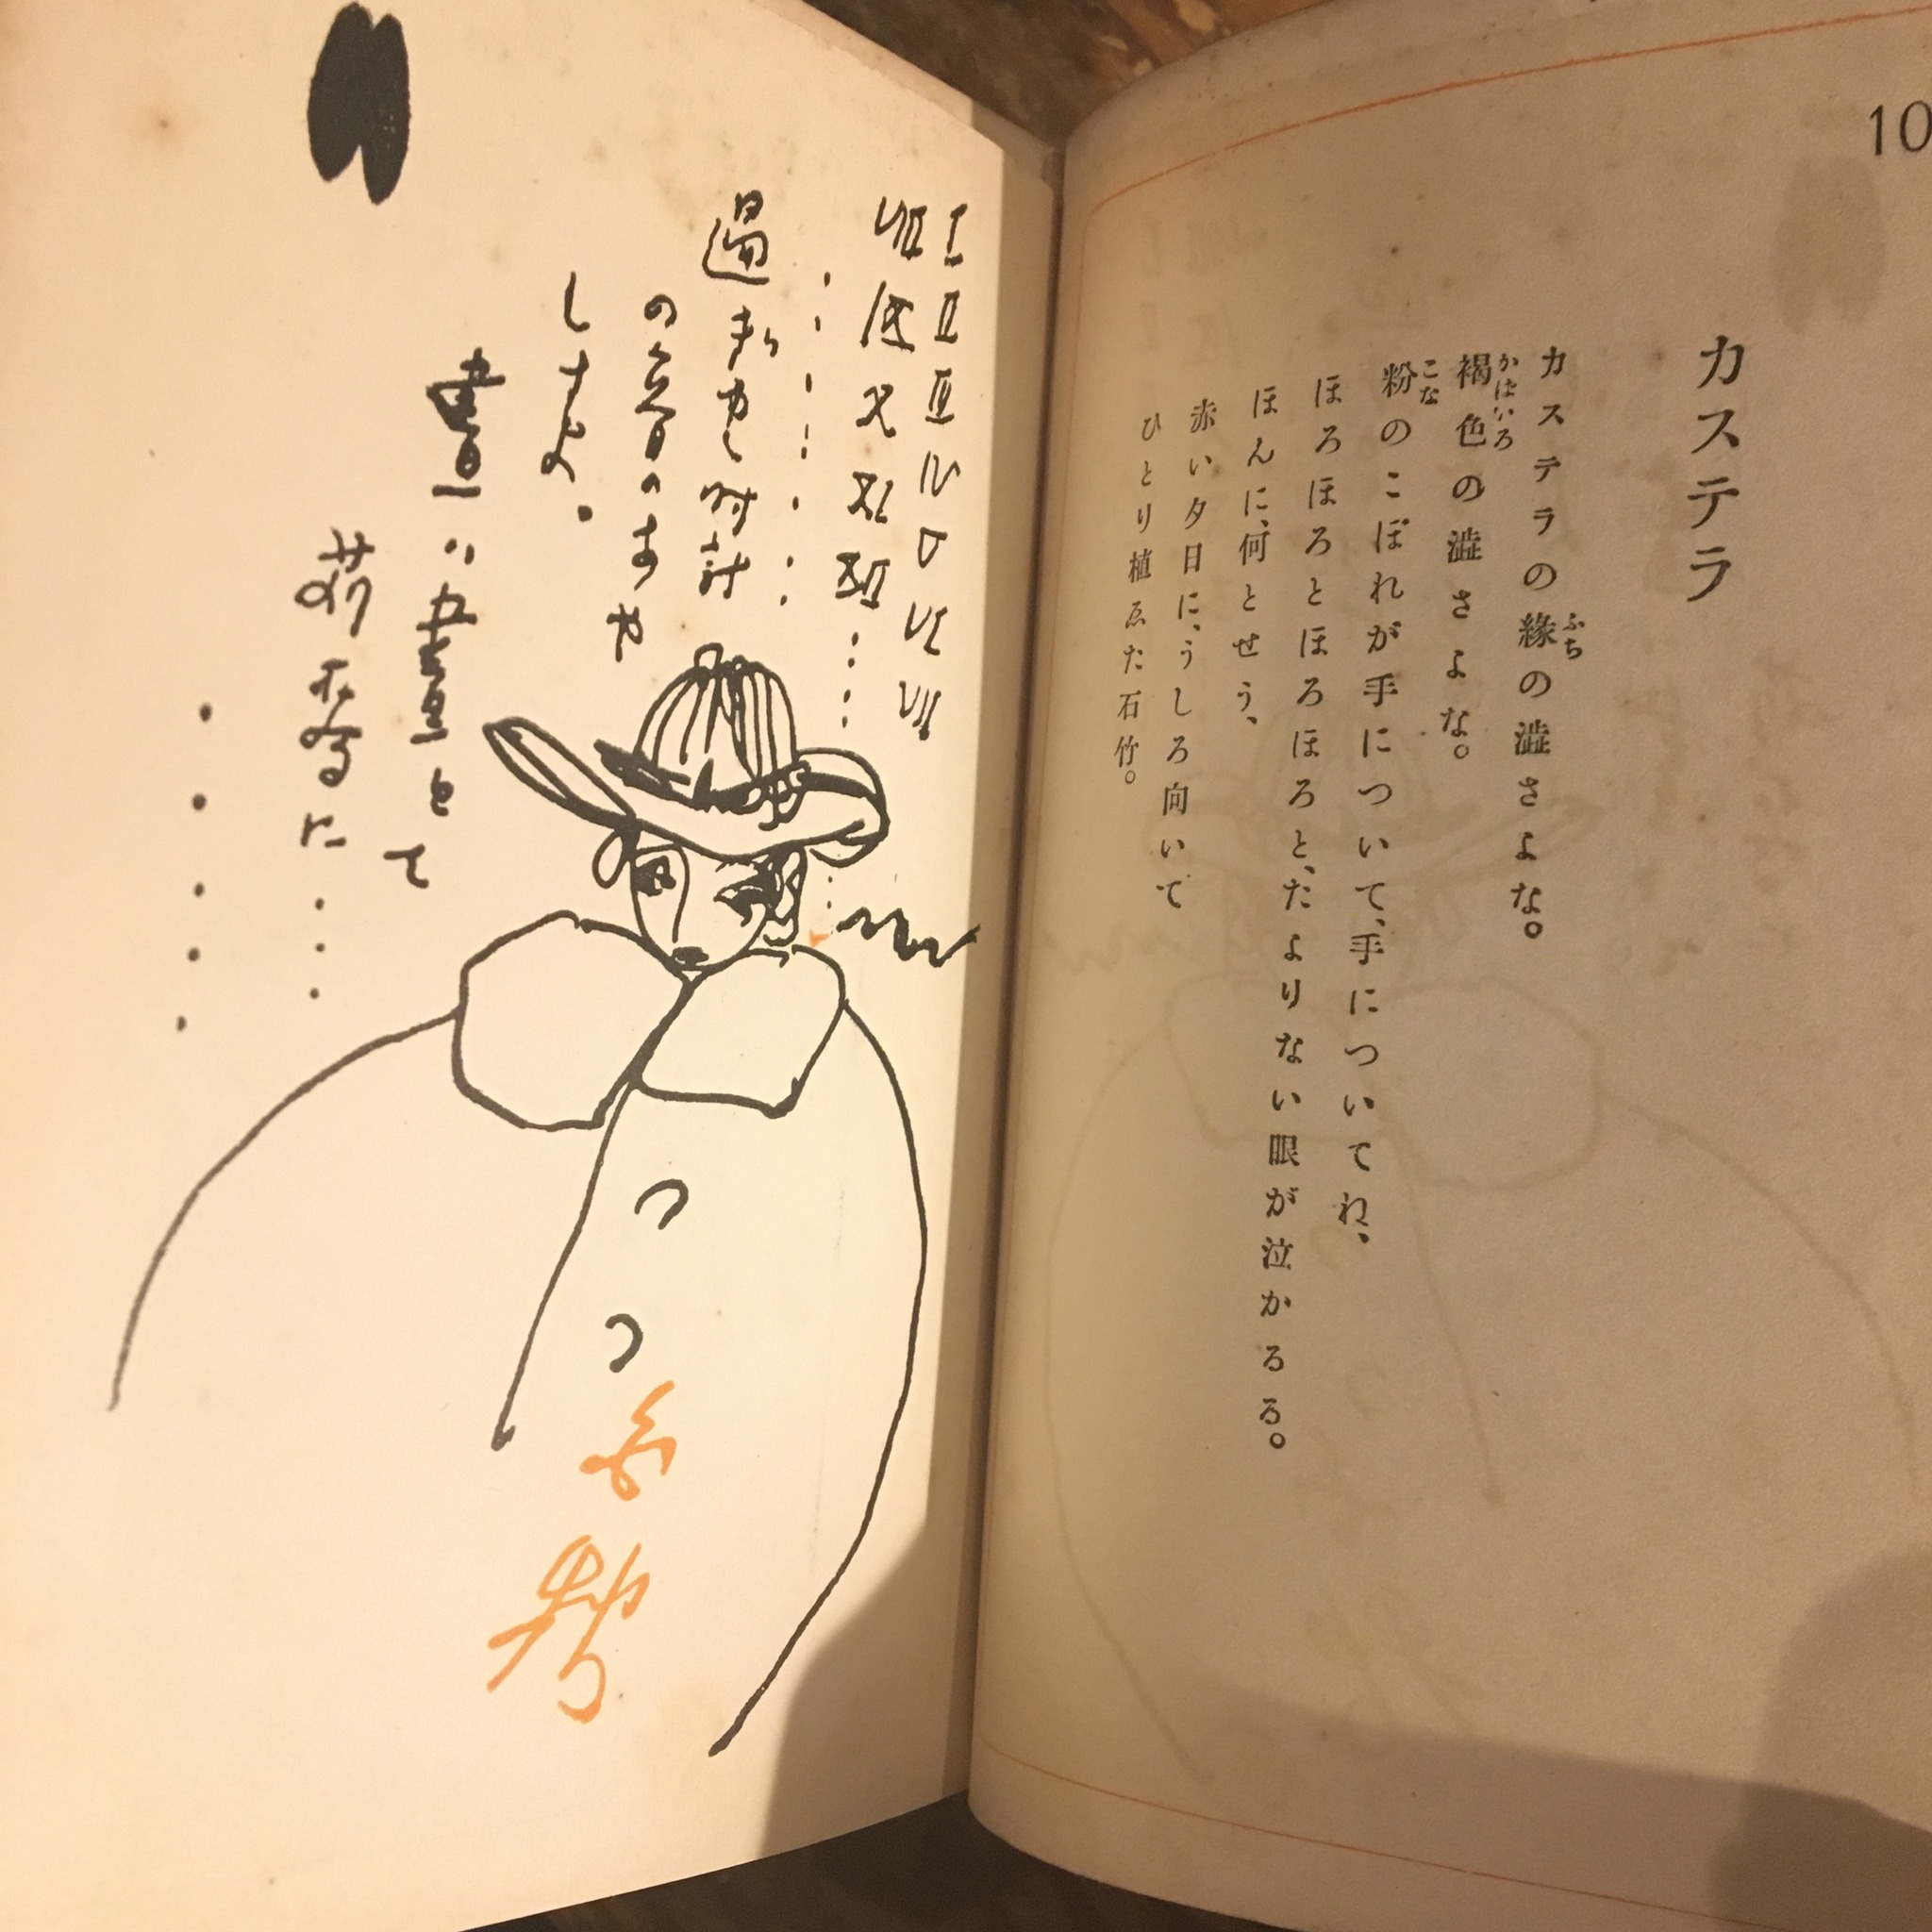 10
カステラ
カステラの緣の澁さよな。
ふち
褐色の澁さよな。
かはいろ
粉のこぼれが手について、手についてね、
こな
ほろほろとほろほろと、たよりない眼が泣かるる。
ほんに、何とせう、
赤い夕日に、うしろ向いて
ひとり植ゑた石竹。
I II III IV V VI VII
VIII IX X XI XII
時計
の音の
晝は晝とて